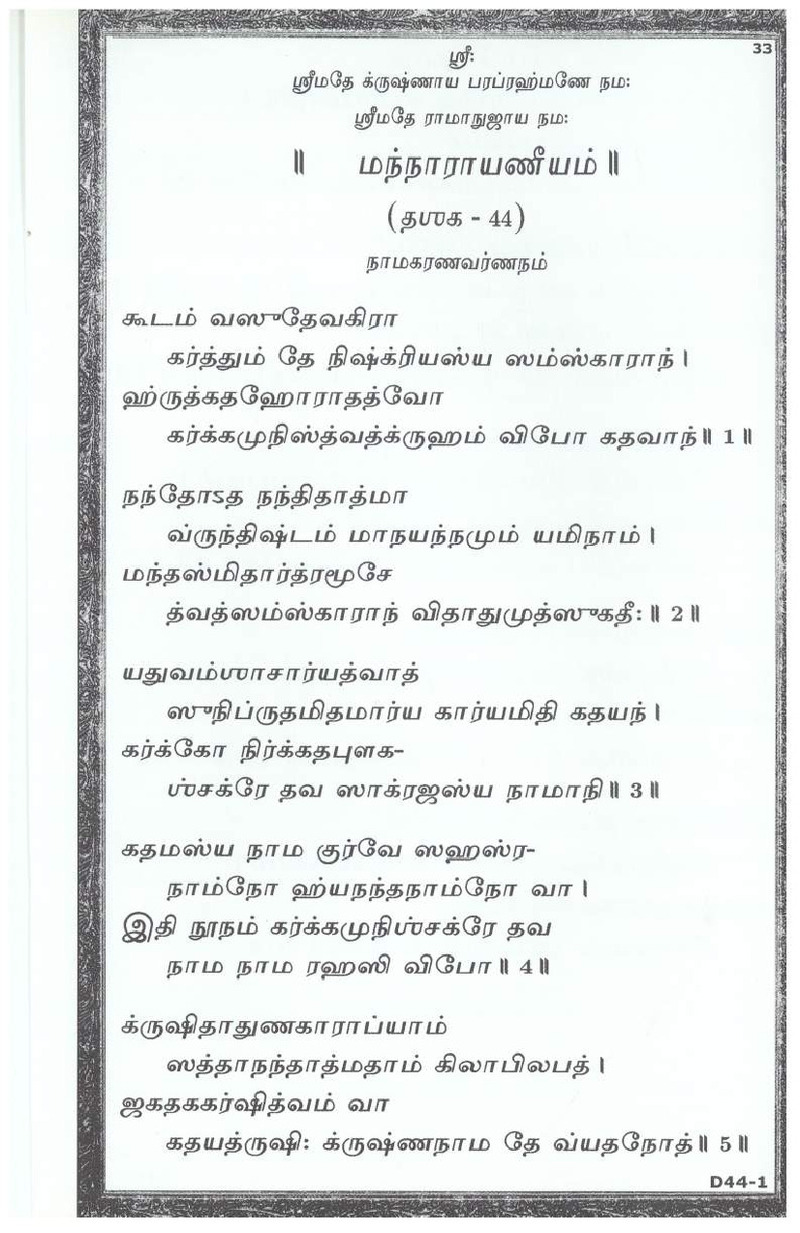 33
ஸ்ரீ:
ஸ்ரீமதே க்ருஷ்ணாய பரப்ரஹ்மணே நம:
ஸ்ரீமதே ராமாநுஜாய நம:
॥ மந்நாராயணீயம் ॥
(தஶக - 44)
நாமகரணவர்ணநம்
கூடம் வஸுதேவகிரா
கர்த்தும் தே நிஷ்க்ரியஸ்ய ஸம்ஸ்காராந் ।
ஹ்ருத்கதஹோராதத்வோ
கர்க்கமுநிஸ்த்வத்க்ருஹம் விபோ கதவாந் ॥ 1 ॥
நந்தோऽத நந்திதாத்மா
வ்ருந்திஷ்டம் மாநயந்நமும் யமிநாம் ।
மந்தஸ்மிதார்த்ரமூசே
த்வத்ஸம்ஸ்காராந் விதாதுமுத்ஸுகதீ: ॥ 2 ॥
யதுவம்ஶாசார்யத்வாத்
ஸுநிப்ருதமிதமார்ய கார்யமிதி கதயந் ।
கர்க்கோ நிர்க்கதபுளக-
ஶ்சக்ரே தவ ஸாக்ரஜஸ்ய நாமாநி ॥ 3 ॥
கதமஸ்ய நாம குர்வே ஸஹஸ்ர-
நாம்நோ ஹ்யநந்தநாம்நோ வா ।
இதி நூநம் கர்க்கமுநிஶ்சக்ரே தவ
நாம நாம ரஹஸி விபோ ॥ 4 ॥
க்ருஷிதாதுணகாராப்யாம்
ஸத்தாநந்தாத்மதாம் கிலாபிலபத் ।
ஜகதககர்ஷித்வம் வா
கதயத்ருஷி: க்ருஷ்ணநாம தே வ்யதநோத் ॥ 5 ॥
D44-1